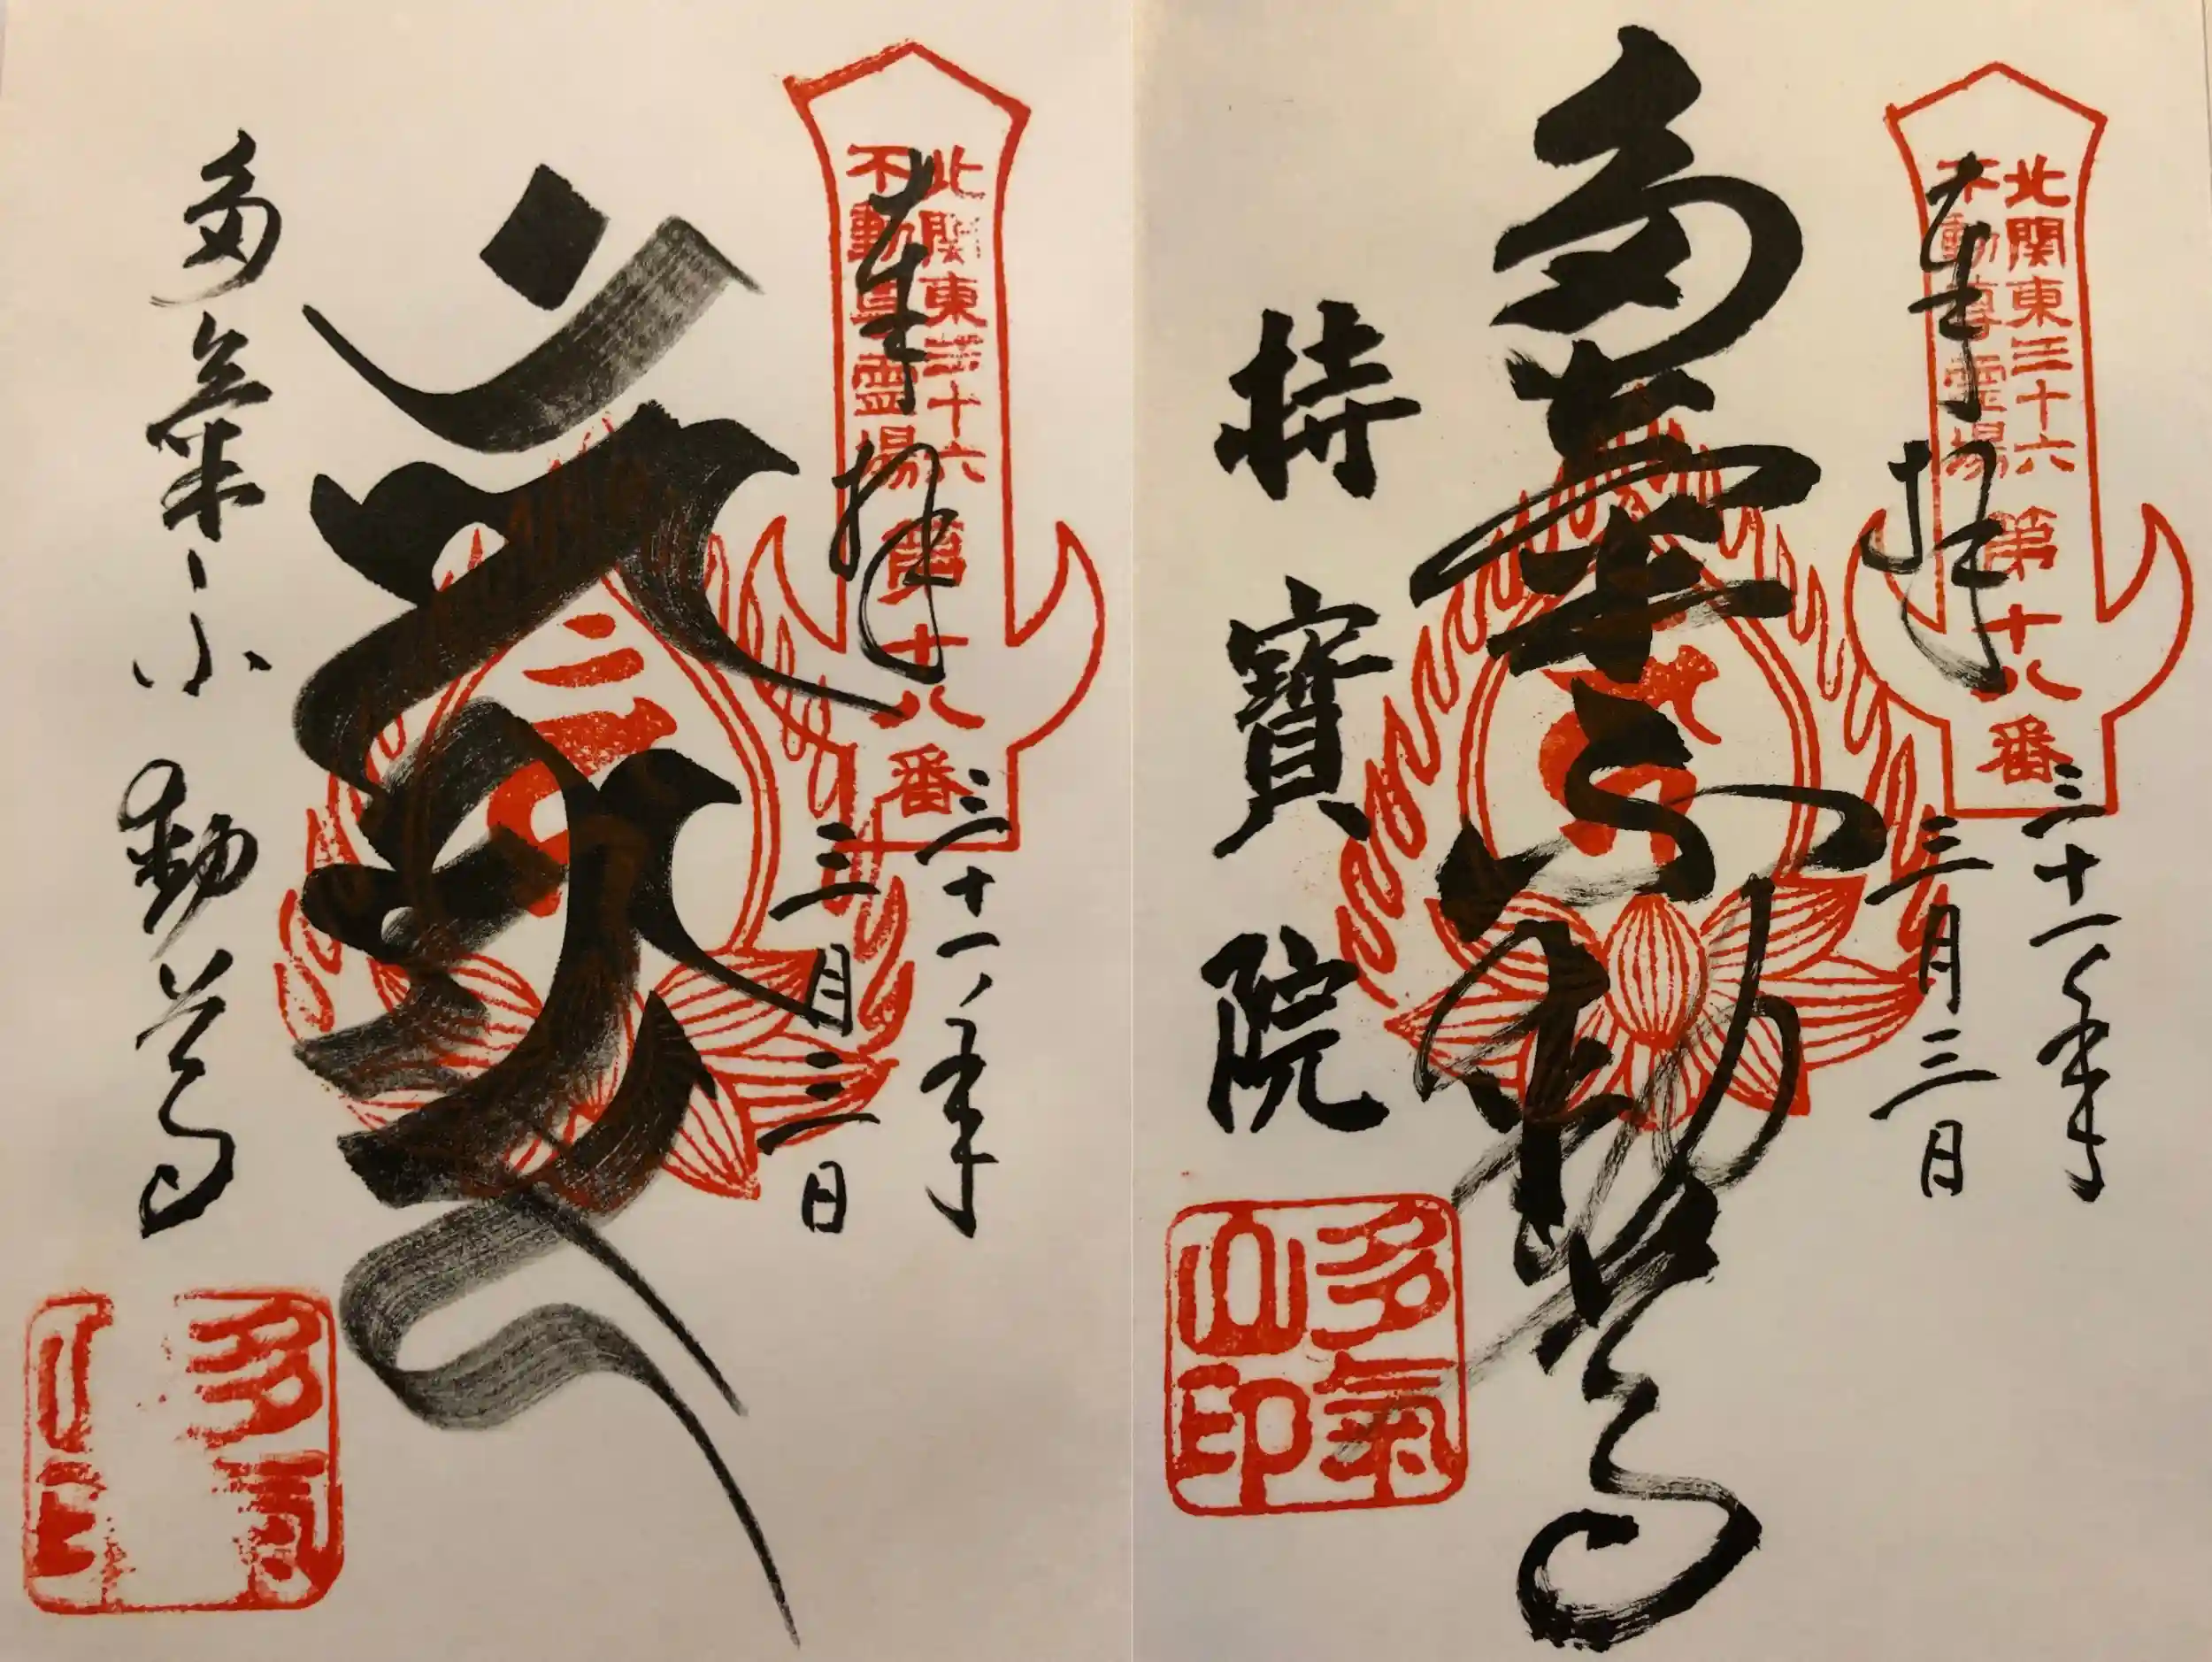 北関東三十六
不動尊霊場
第十八番
奉拝
三十一年
三月三日
多氣不動尊
持寶院
多氣
山印
北関東三十六
不動尊霊場
第十八番
奉拝
三十一年
三月三日
多氣不動尊
多